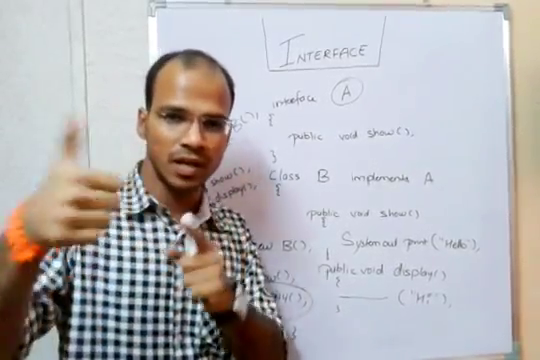 INTERFACE
interface A
{
public void show();
}
Class B implements A
{
public void show()
{
System.out print("Hello");
}
public void display()
{
("Hi");
}
show();
display();
B();
}